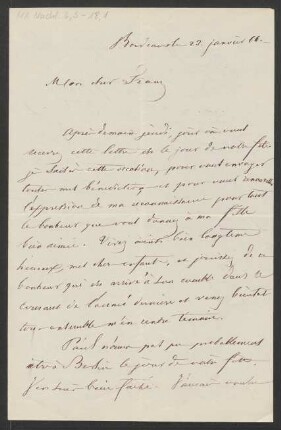 22 janvier 66.
Mon cher Franz
Après demain jeudi, jour où vous
recevrez cette lettre est le jour de votre fête
je saisis cette occasion, pour vous envoyer
toutes mes bénédictions et pour vous renouveler
l'expression de ma reconnaissance pour tout
le bonheur que vous donnez à ma fille
bien aimée. Vivez ainsi bien longtems
heureux, mes chers enfants, et jouissez de ce
bonheur qui est arrivé à son comble dans le
courant de l'année dernière et venez bientôt
tous ensemble m'en rendre témoin.
Paul n'aura pas pu probablement
être à Berlin le jour de votre fête.
J'en suis bien fâché. J'aurais voulu